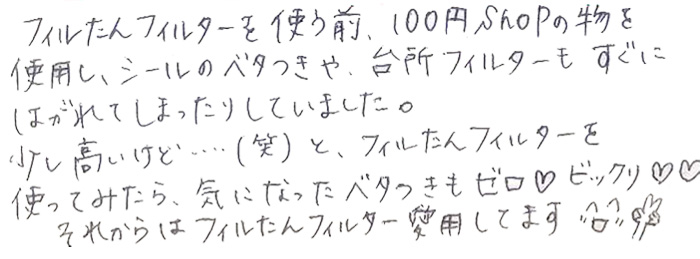 フィルたんフィルターを使う前、100円shopの物を
使用し、シールのベタつきや、台所フィルターもすぐに
はがれてしまったりしていました。
少し高いけど‥‥(笑)と、フィルたんフィルターを
使ってみたら、気になったベタつきもゼロ♡ビックリ♡♡
それからはフィルたんフィルター愛用してます